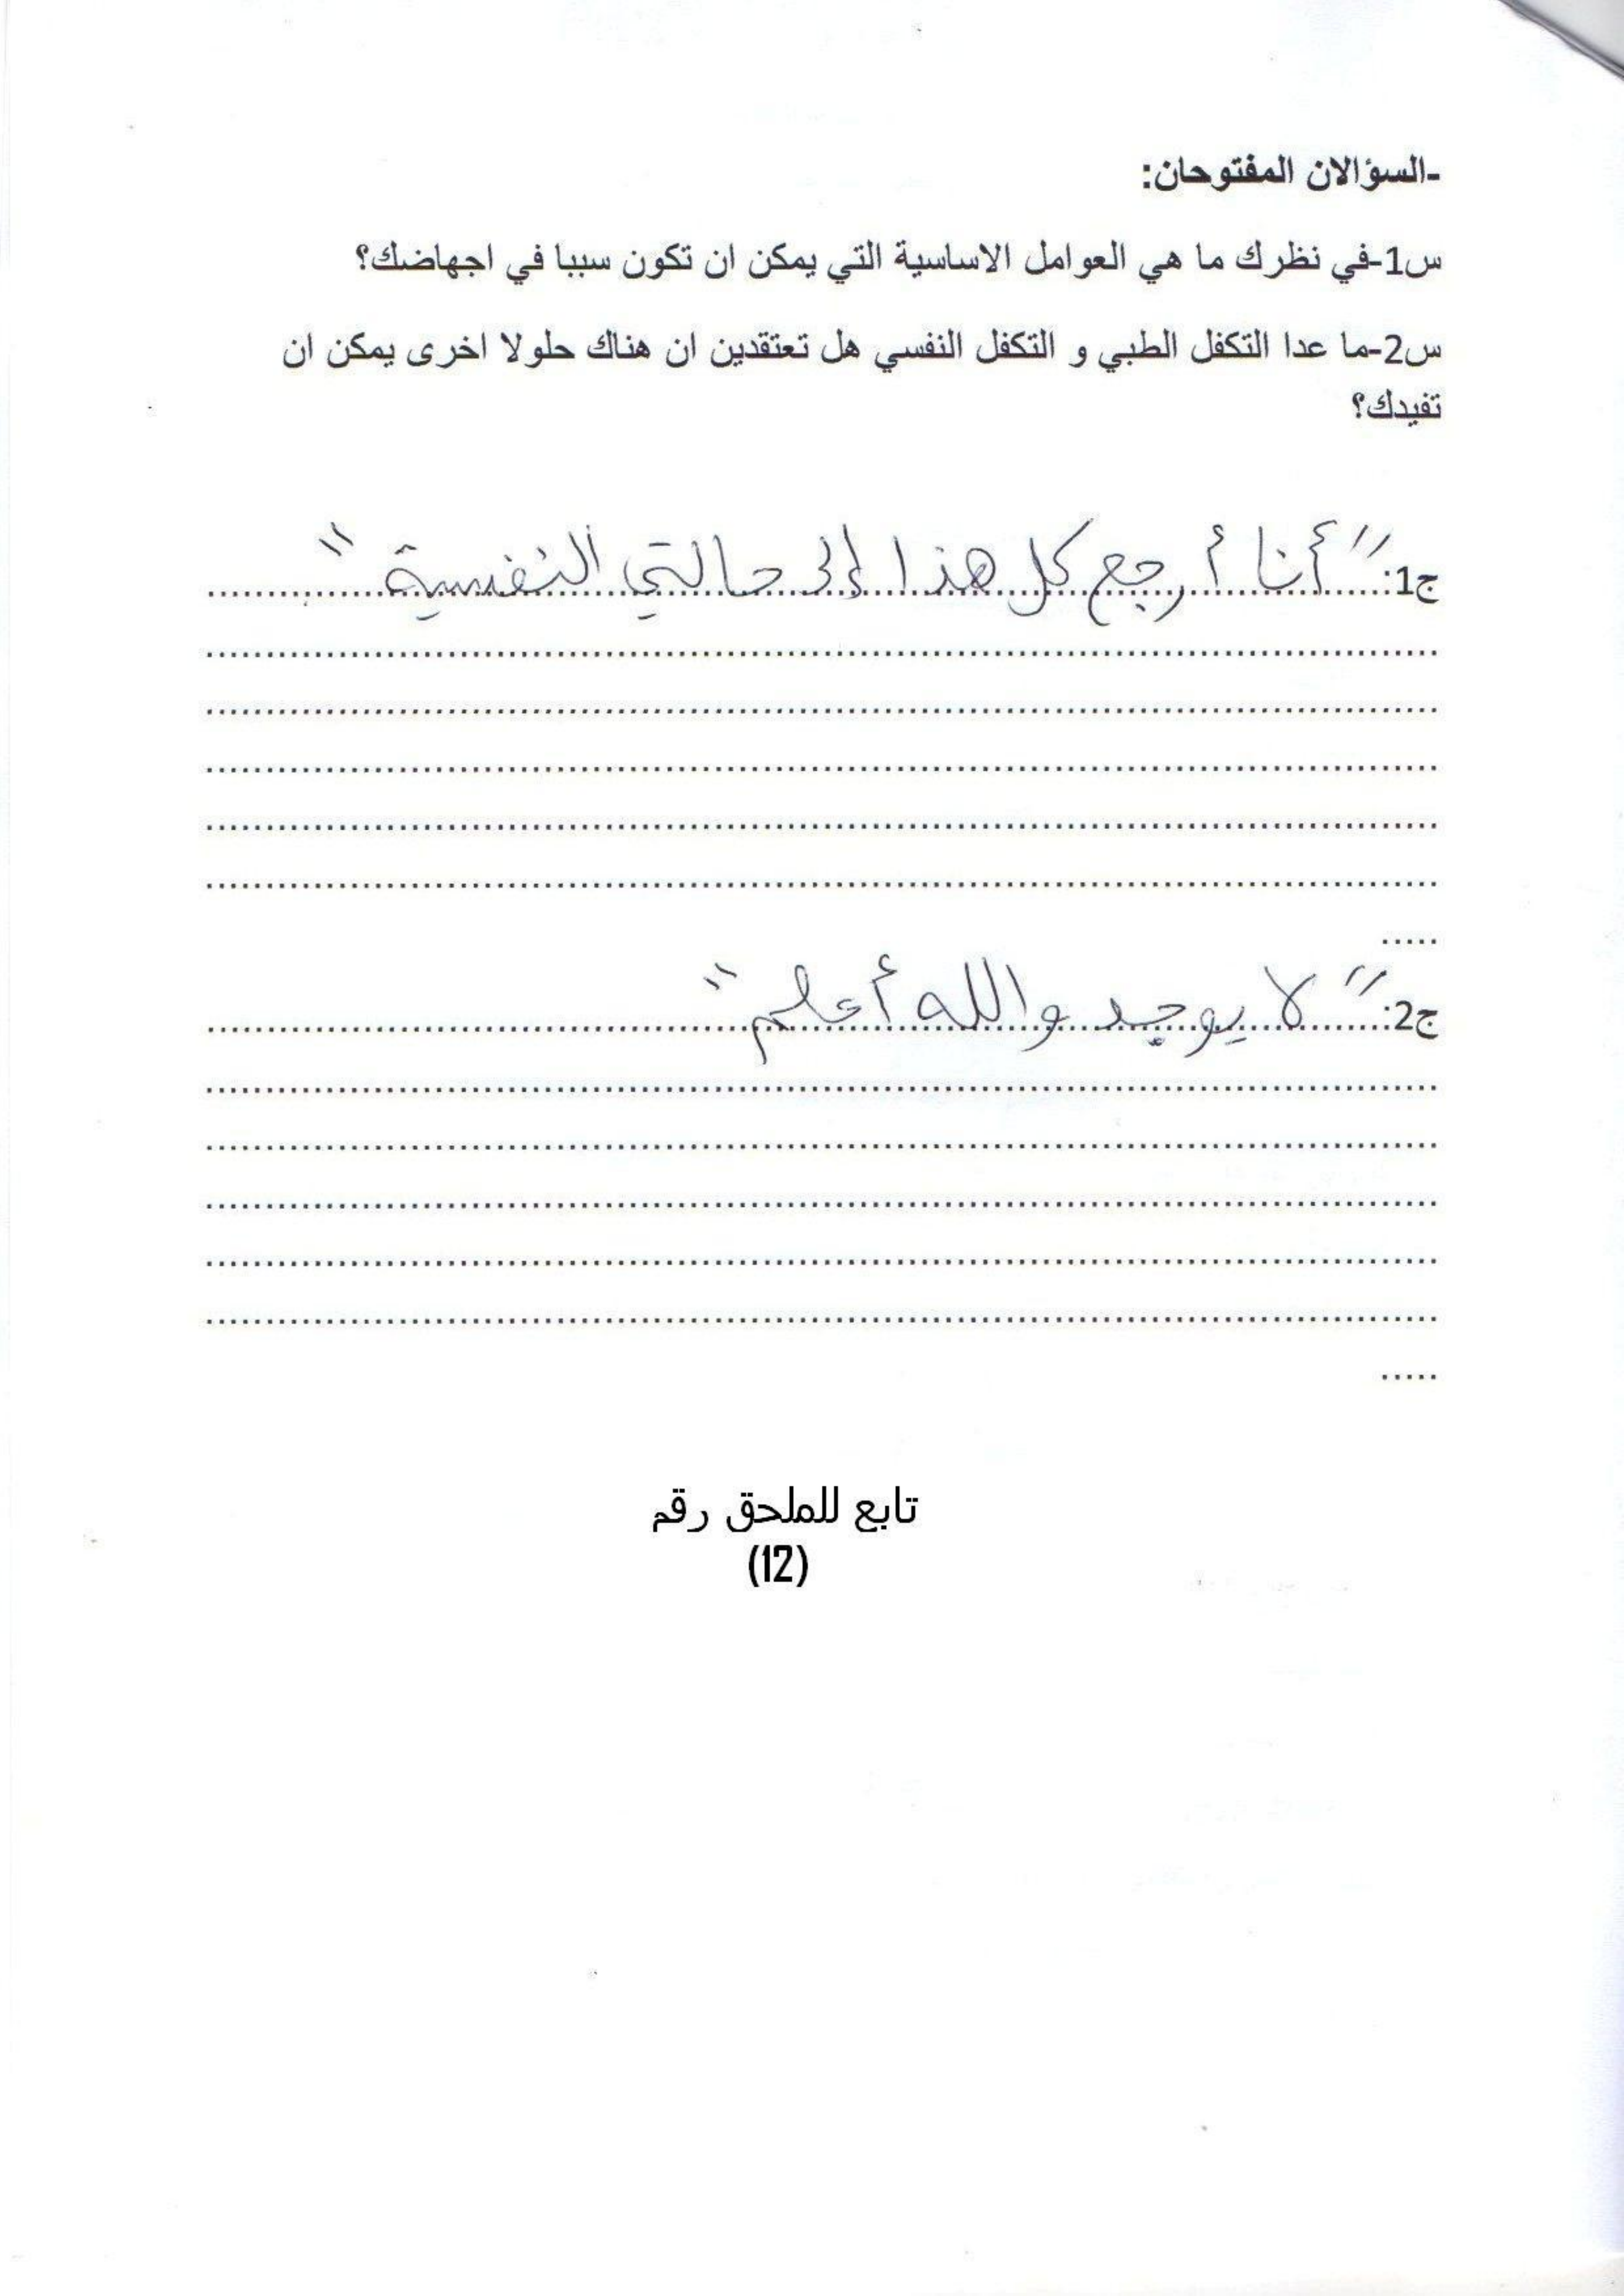 -السؤالان المفتوحان:
س1-في نظرك ما هي العوامل الاساسية التي يمكن ان تكون سببا في اجهاضك؟
س2-ما عدا التكفل الطبي و التكفل النفسي هل تعتقدين ان هناك حلولا اخرى يمكن ان
تفيدك؟
ج1: "أنا أرجع كل هذا إلى حالتي النفسية"
ج2: "لا يوجد والله أعلم"
تابع للملحق رقم
(12)